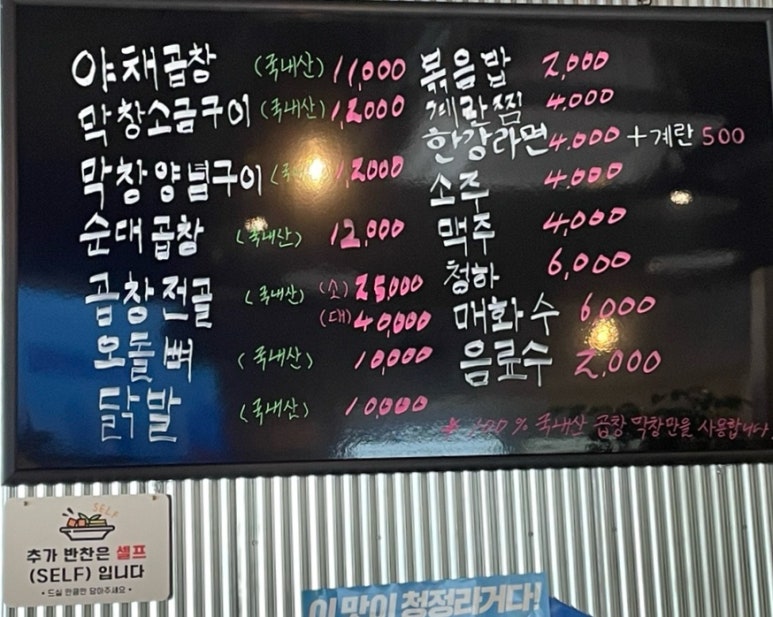 야채곱창 (국내산) 11,000
막창소금구이 (국내산) 12,000
막창양념구이 (국내산) 12,000
순대곱창 (국내산) 12,000
곱창전골 (국내산) (소) 25,000
(대) 40,000
오돌뼈 (국내산) 10,000
닭발 (국내산) 10,000
볶음밥 2,000
계란찜 4,000
한강라면 4.000 +계란 500
소주 4,000
맥주 4,000
청하 6,000
매화수 6000
음료수 2,000
* 100% 국내산 곱창 막창만을 사용합니다
SELF
추가 반찬은 셀프
(SELF) 입니다
• 드실 만큼만 담아주세요 •
이 맛이 청정라거다!